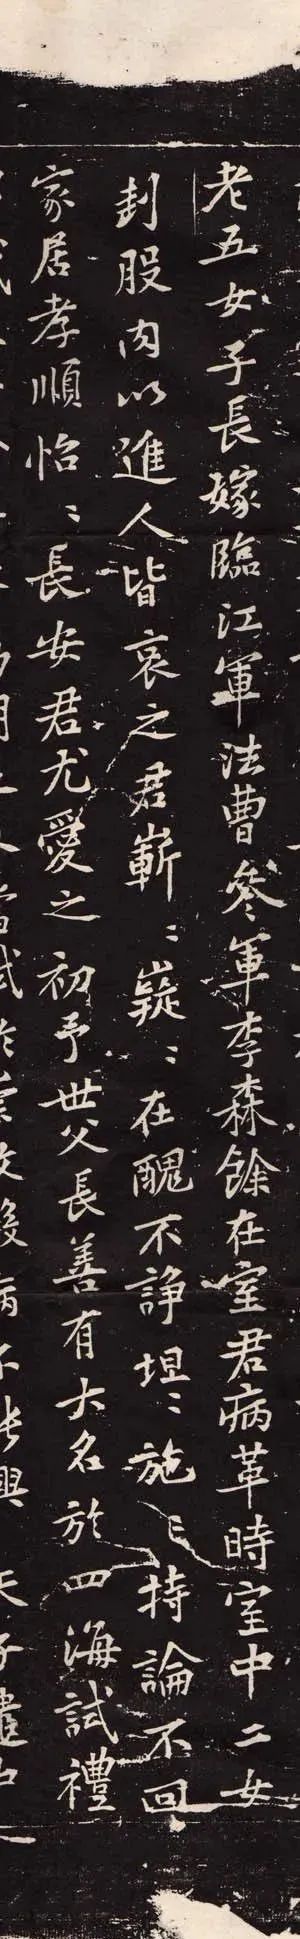 老五女子長嫁臨江軍法曹參軍李森餘在室君病革時室中二女
刲股肉以進人皆哀之君嶄〻嶷〻在醜不諍坦〻施〻持論不回
家居孝順怡〻長安君尤愛之初予世父長善有大名於四海試禮